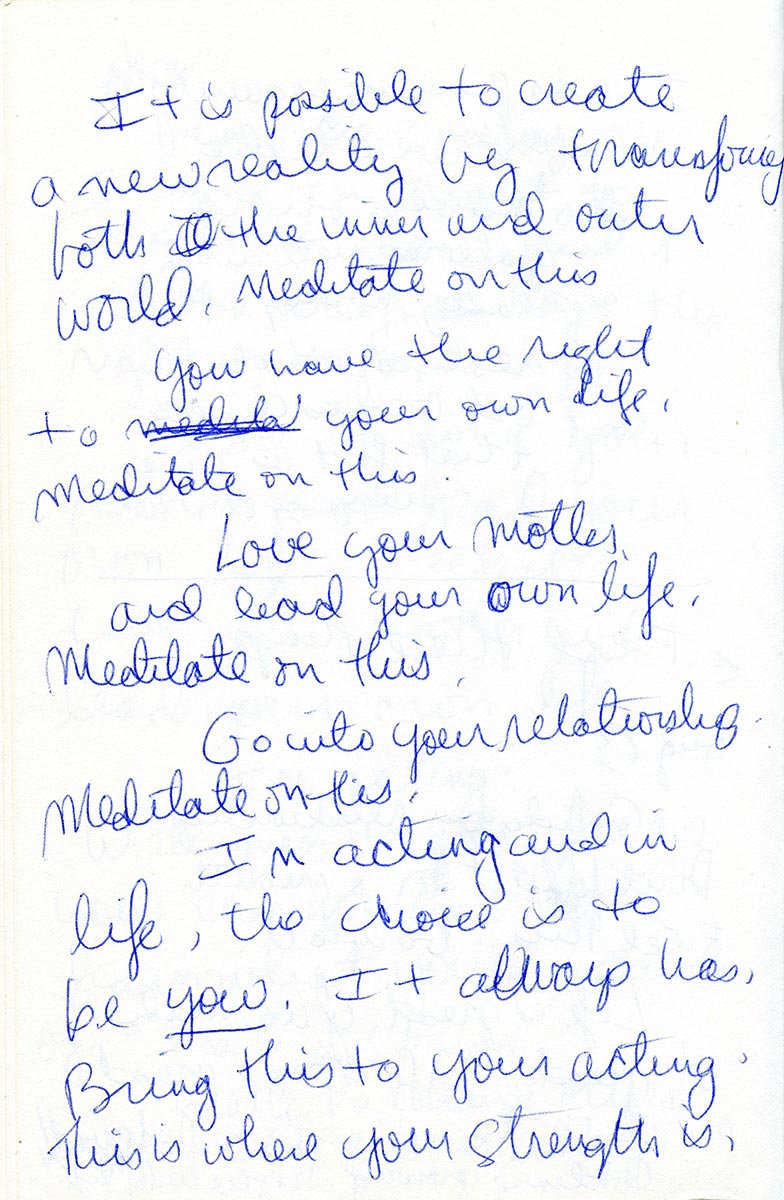 It is possible to create
a new reality by transforming
both the inner and outer
world. Meditate on this
You have the right
to your own life.
Meditate on this.
Love your mother
and lead your own life.
Meditate on this.
Go into your relationship.
Meditate on this.
In acting and in
life, the choice is to
be you. It always has.
Bring this to your acting.
This is where your strength is.